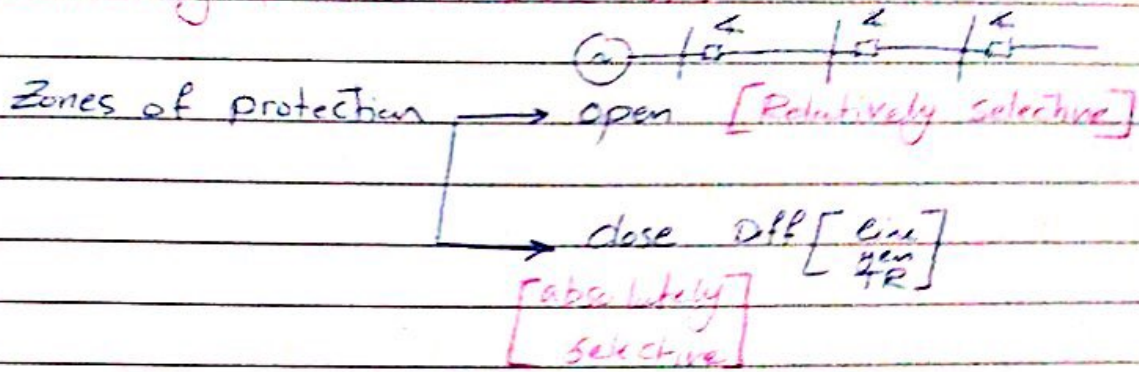 Zones of protection → open [Relatively selective]
→ close Diff [line
gen
TR]
[absolutely
selective]